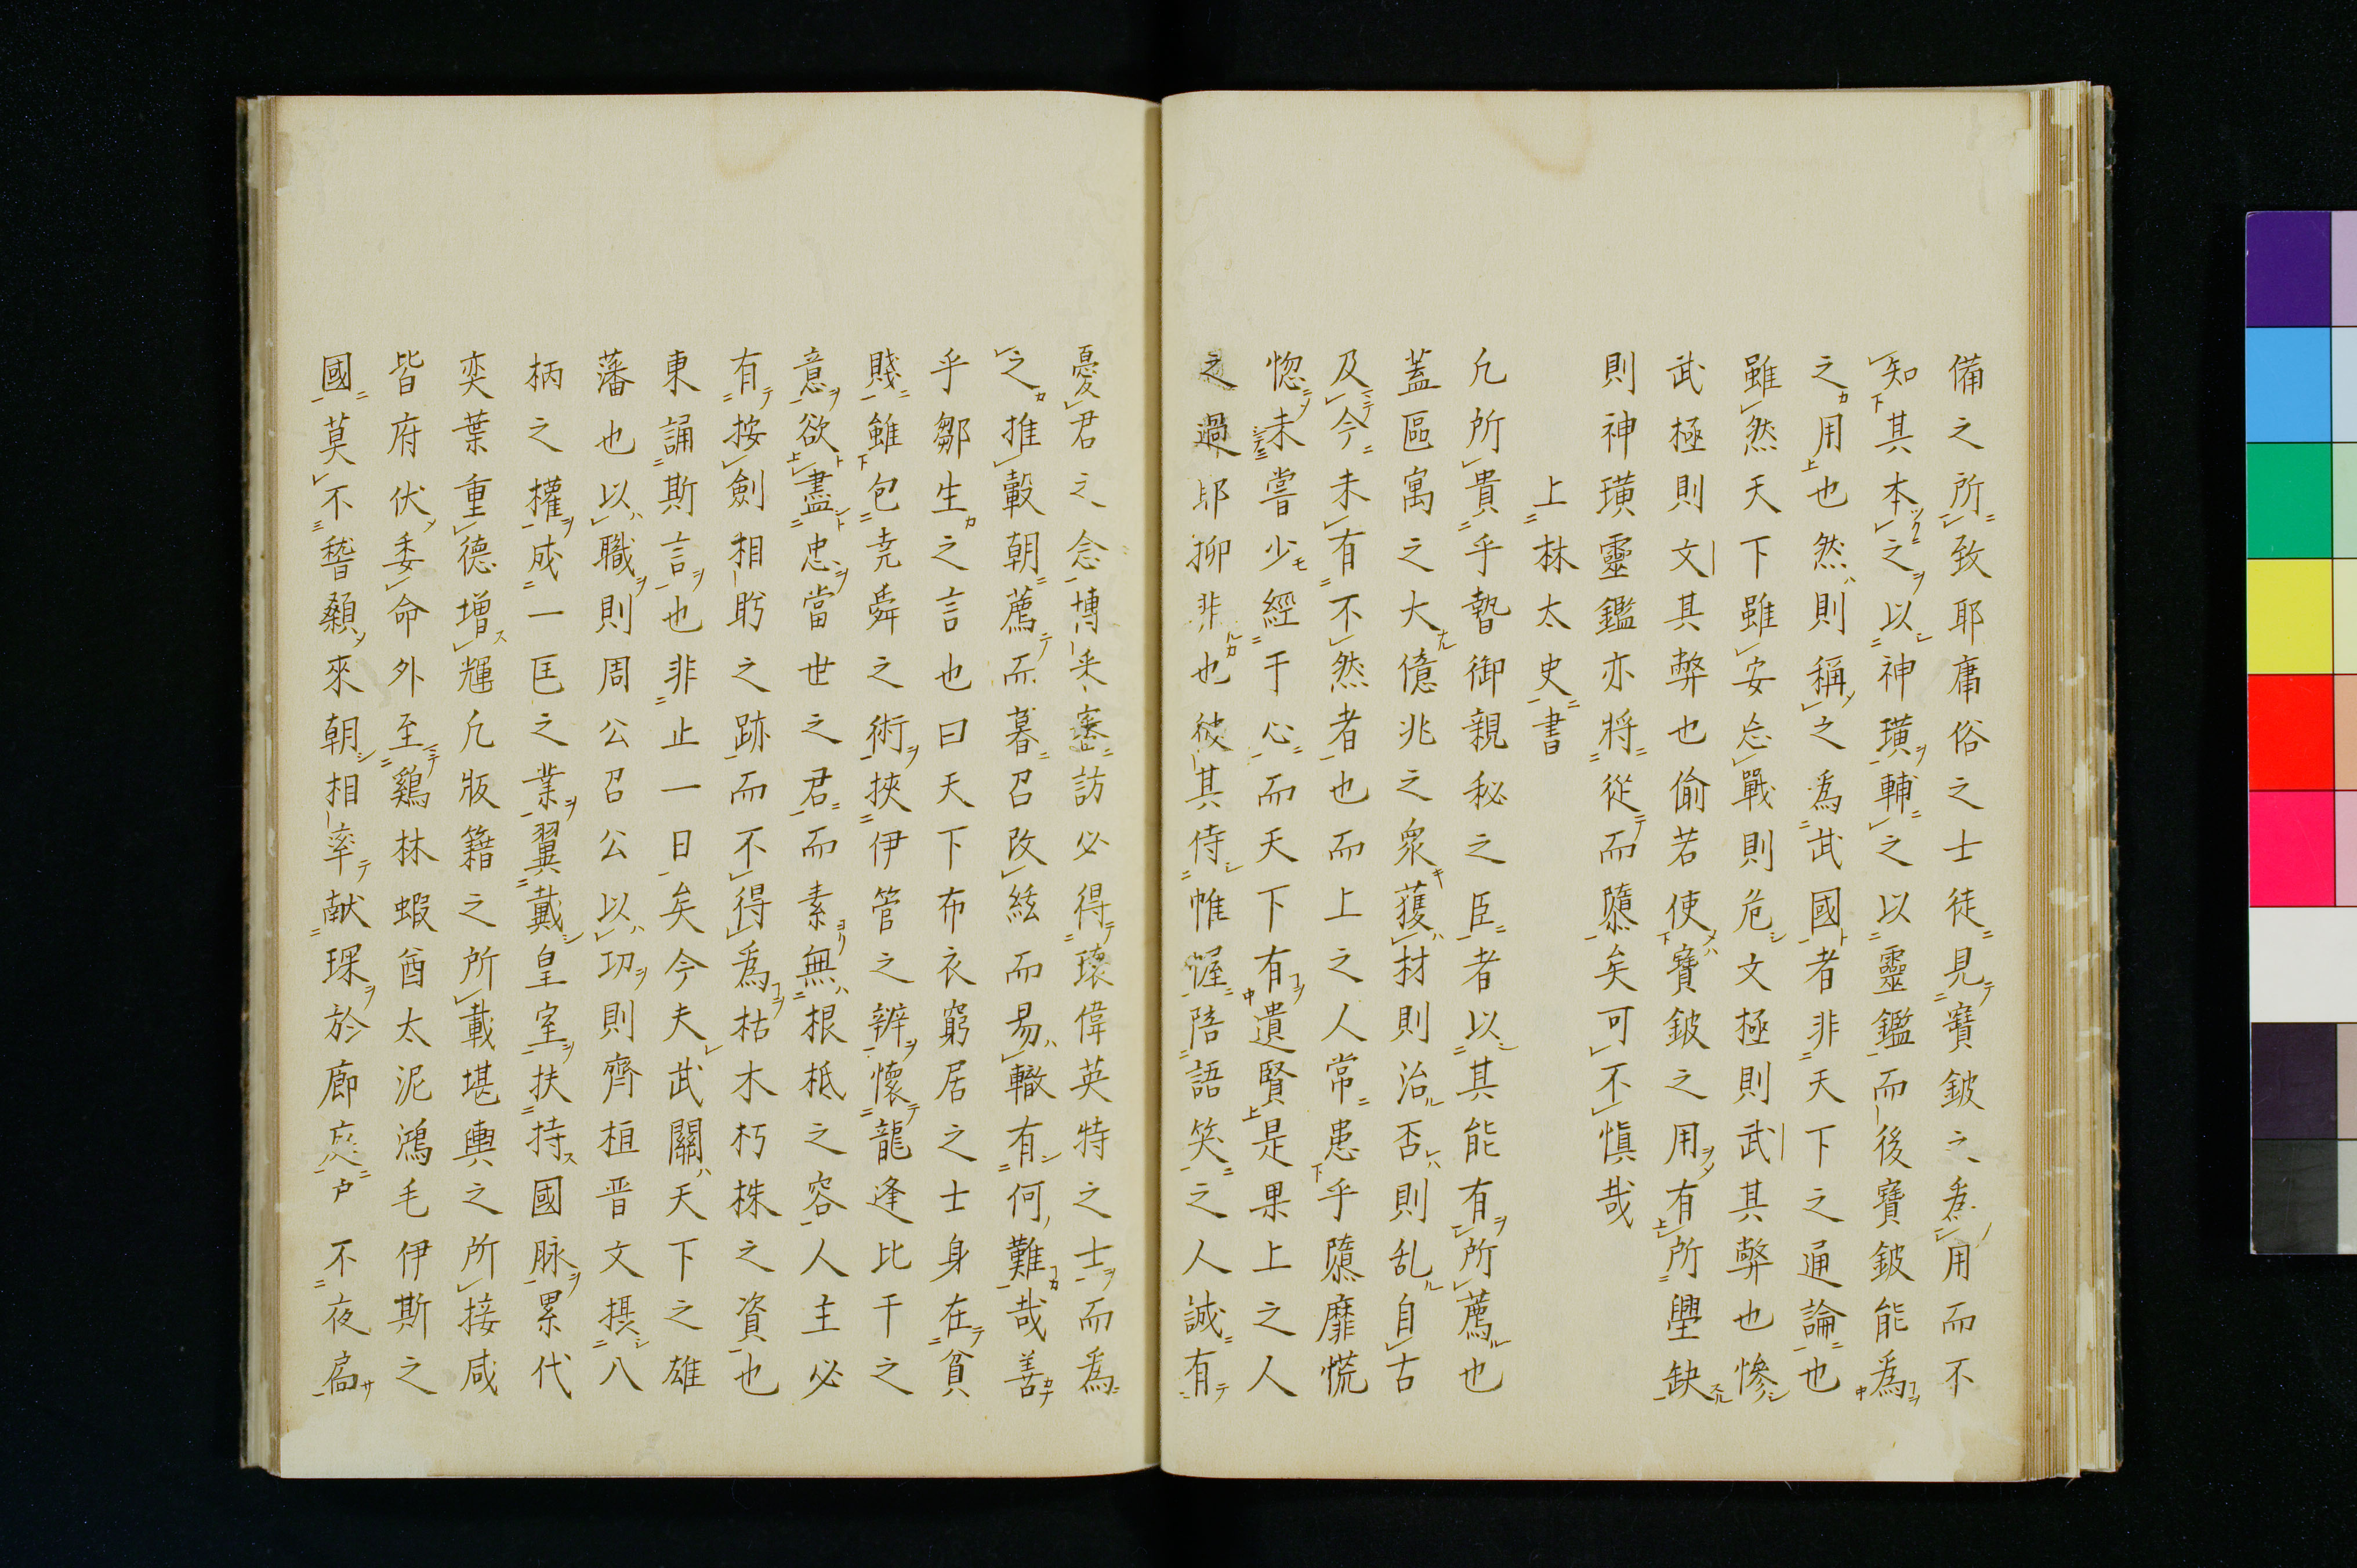 備之所致耶庸俗之士徒見寶鈹之為用而不
知其本之以神璜輔之以靈鑑而後寶鈹能為
之用也然則稱之為武國者非天下之通論也
雖然天下雖安忘戰則危文極則武其弊也慘
武極則文其弊也偷若使寶鈹之用有所壆缺
則神璜靈鑑亦將從而隳矣可不慎哉
上林太史書
凢所貴乎暬御親秘之臣者以其能有所薦也
蓋區寓之大億兆之衆獲材則治否則乱自古
及今未有不然者也而上之人常患乎隳靡慌
惚未嘗少經于心而天下有遺賢是果上之人
之過耶抑非也彼其侍帷幄陪語笑之人誠有
憂君之念博采審訪必得瓌偉英特之士而為
之推轂朝薦而暮召改絃而易轍有何難哉善
乎鄒生之言也曰天下布衣窮居之士身在貧
賤雖包尭舜之術挾伊管之辨懷龍逢比干之
意欲盡忠當世之君而素無根柢之容人主必
有按劍相眄之跡而不得為枯木朽株之資也
東誦斯言也非止一日矣今夫武關天下之雄
藩也以職則周公召公以功則齊桓晋文摂八
柄之權成一匡之業翼戴皇室扶持國脉累代
奕葉重德增輝凢版籍之所載堪輿之所接咸
皆府伏委命外至鷄林蝦酋太泥鴻毛伊斯之
國莫不稽顙來朝相率献琛於廊庭戸不夜扃